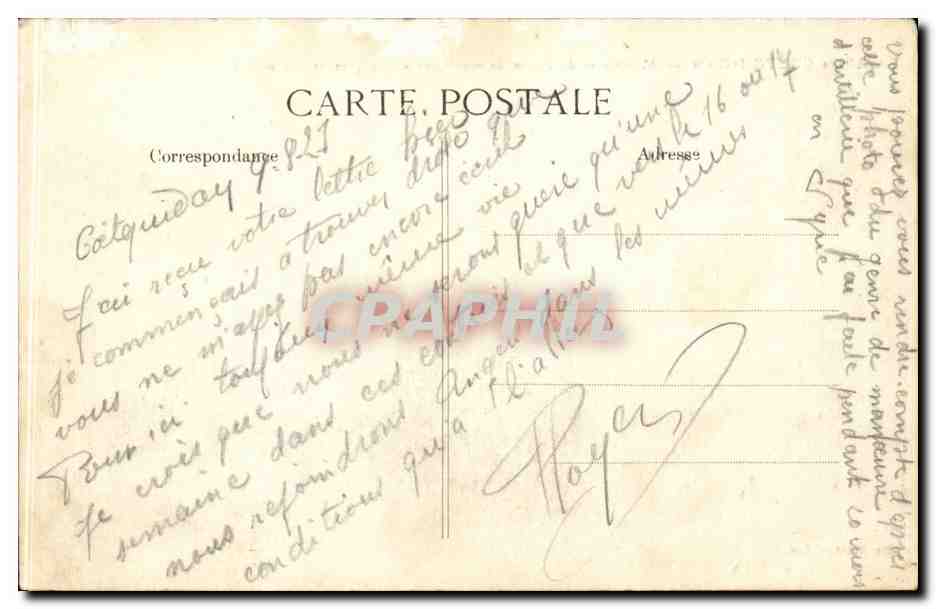 CARTE POSTALE
Correspondance
Adresse
Coëtquidan 9-8 21
J'ai reçu votre lettre hier
je commençais à trouver drôle que
vous ne m'ayez pas encore écrit
Pour ici toujours même vie
Je crois que nous ne serons guère qu'une
semaine dans ces et que vers le 16 ou 17
nous rejoindrons Angers dans les mêmes
conditions qu'à l'aller
CPRAPHIL
Vous pouvez vous rendre-compte d'après
cette photo du genre de manœuvre
d'artillerie que j'ai faite pendant 20 mois
en Syrie